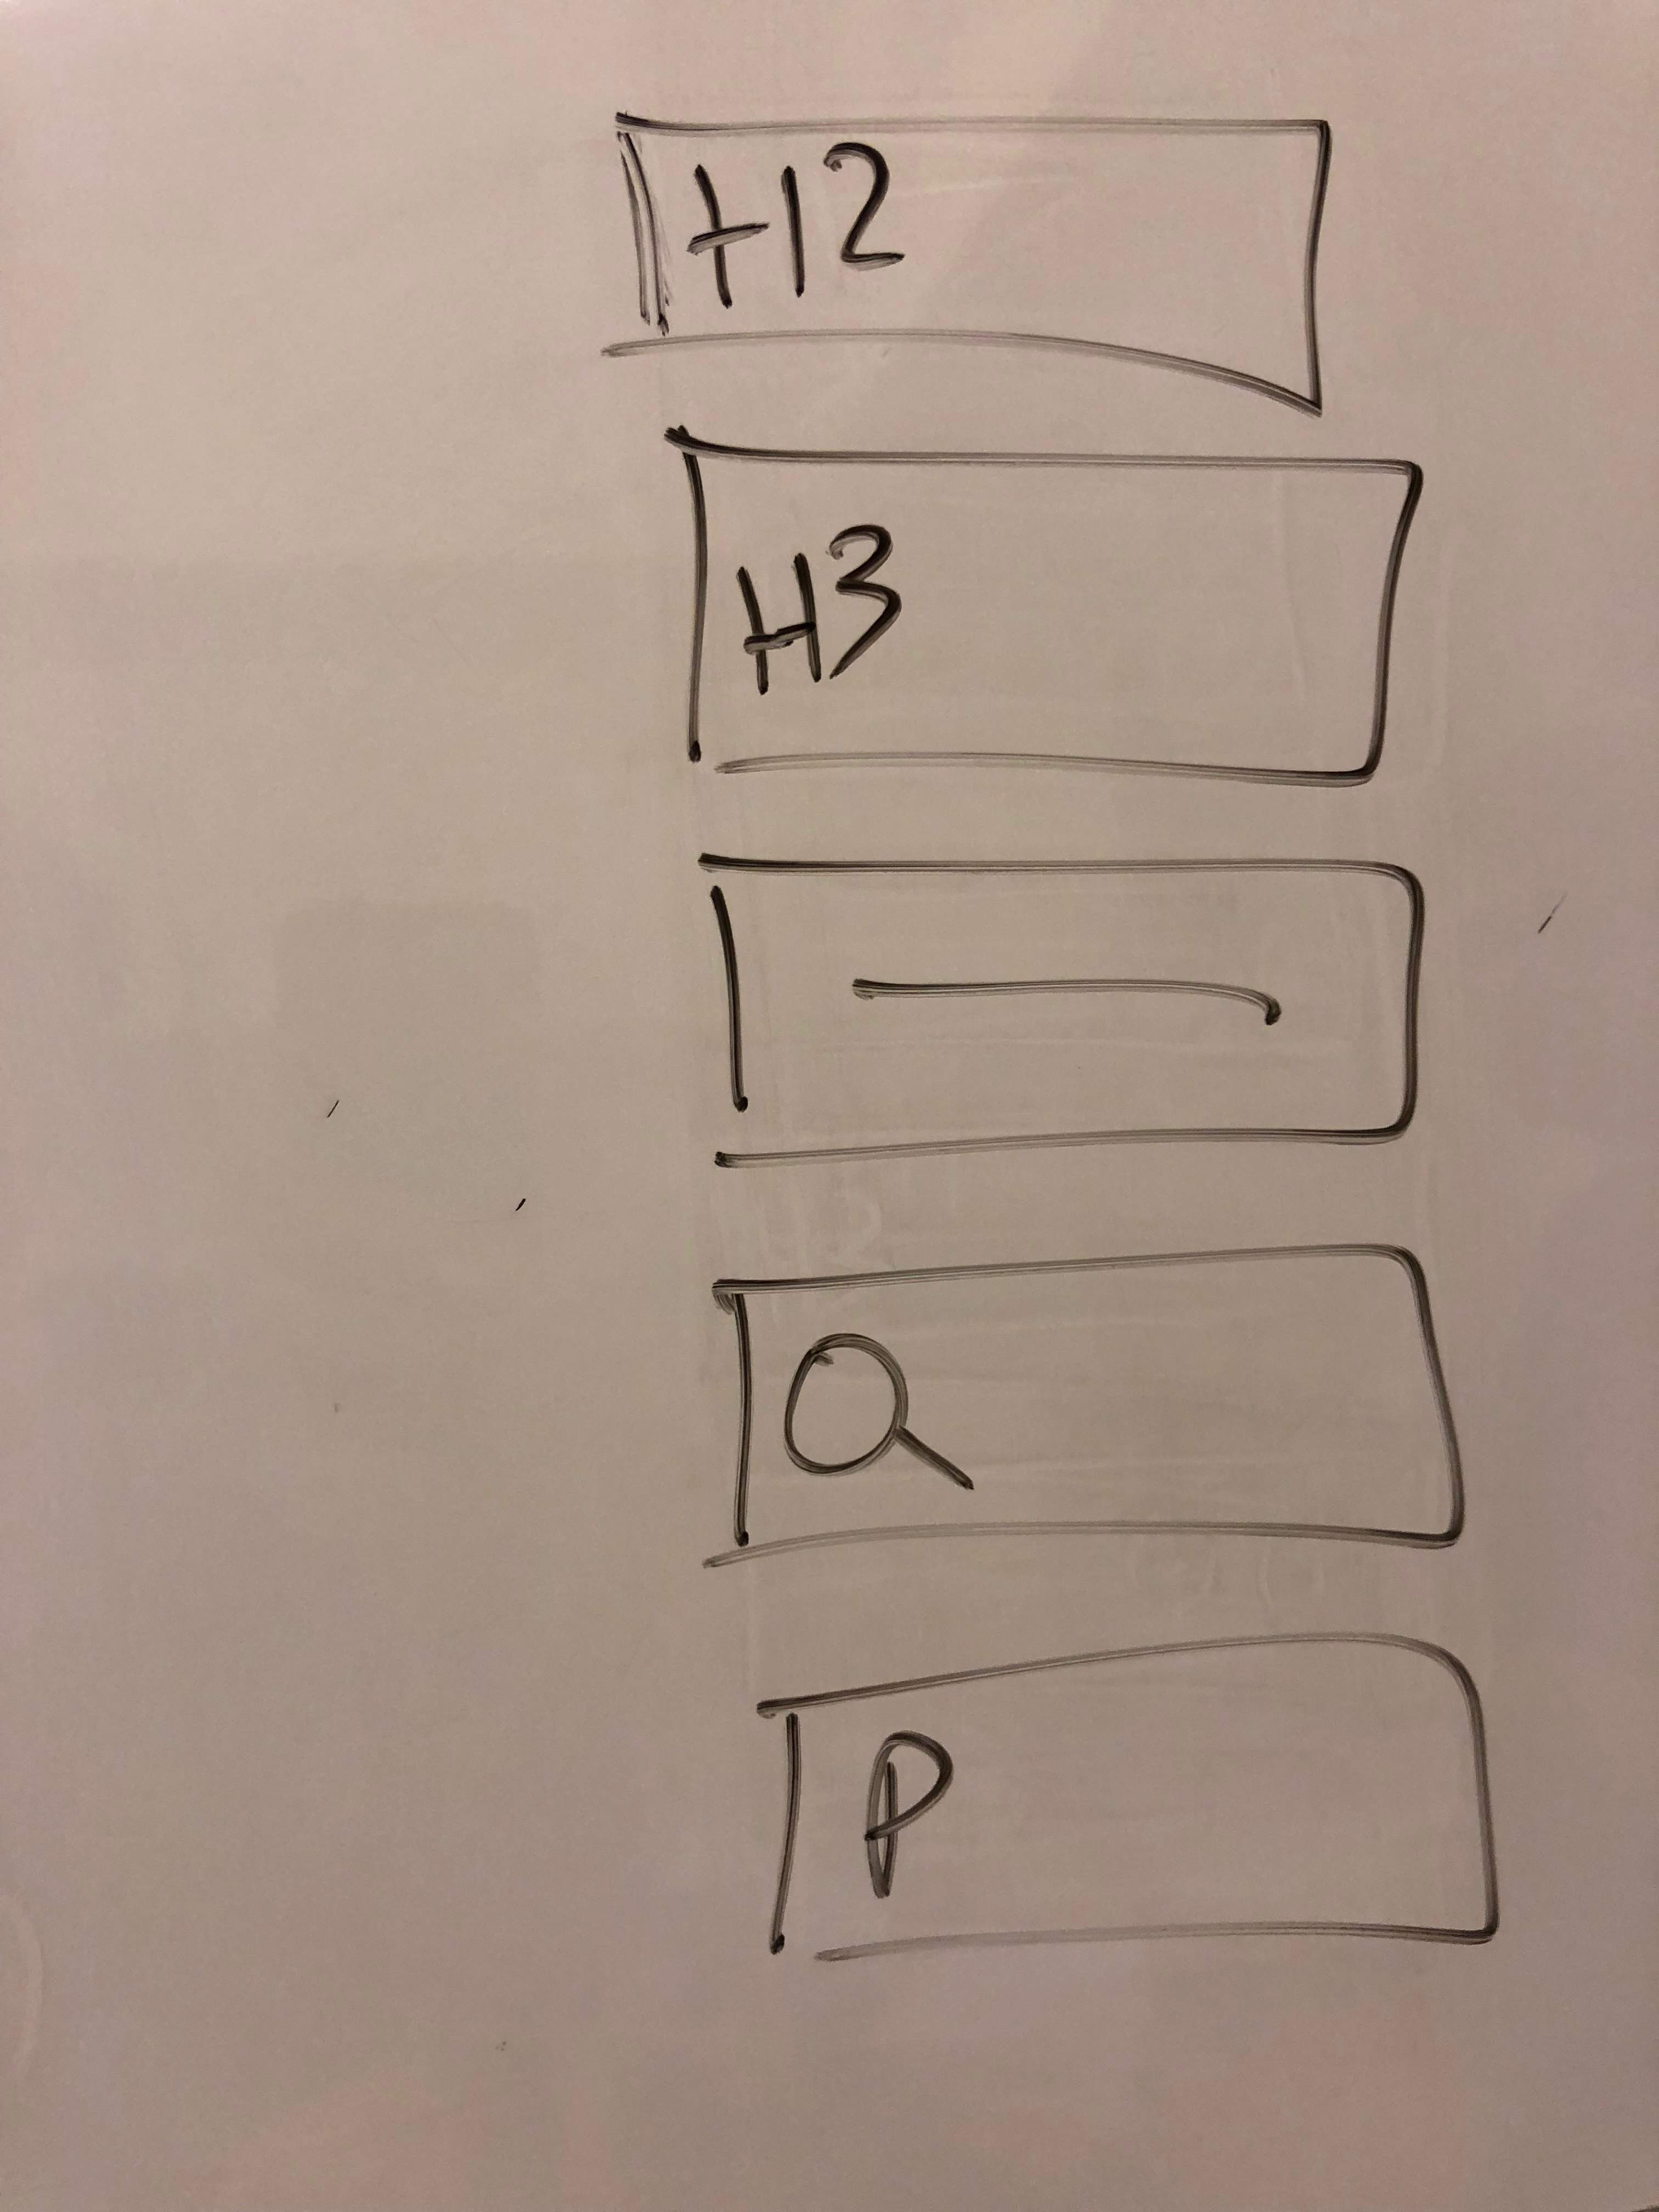 H2
H3
P